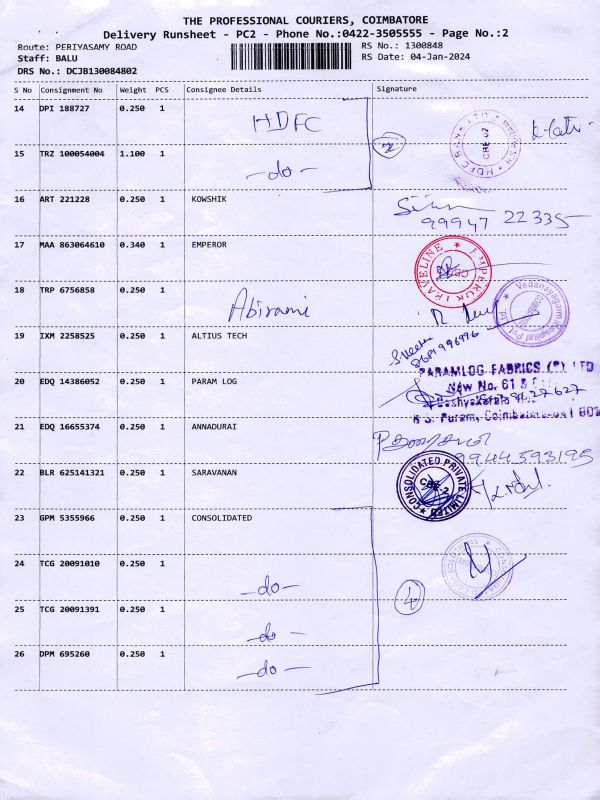 THE PROFESSIONAL COURIERS, COIMBATORE
Delivery Runsheet - PC2 - Phone No.:0422-3505555 - Page No.:2
Route: PERIYASAMY ROAD
RS No.: 1300848
Staff: BALU
RS Date: 04-Jan-2024
DRS No.: DCJB130084802
S No Consignment No Weight PCS Consignee Details Signature
14 DPI 188727 0.250 1 HDFC
2
15 TRZ 100054004 1.100 1 -do-
HDFC BANK LTD
CBE-02
16 ART 221228 0.250 1 KOWSHIK
99947 22335
17 MAA 863064610 0.340 1 EMPEROR
EMPEROR TRAVELINE
18 TRP 6756858 0.250 1 Abirami
Vedanayagam Hospital Pvt Ltd
19 IXM 2258525 0.250 1 ALTIUS TECH
20 EDQ 14386052 0.250 1 PARAM LOG
PARAMLOG FABRICS (P) LTD
New No. 61 &
21 EDQ 16655374 0.250 1 ANNADURAI
9944393195
22 BLR 625141321 0.250 1 SARAVANAN
CONSOLIDATED PRIVATE LIMITED
CBE-2
23 GPM 5355966 0.250 1 CONSOLIDATED
24 TCG 20091010 0.250 1 -do-
4
25 TCG 20091391 0.250 1 -do-
26 DPM 695260 0.250 1 -do-